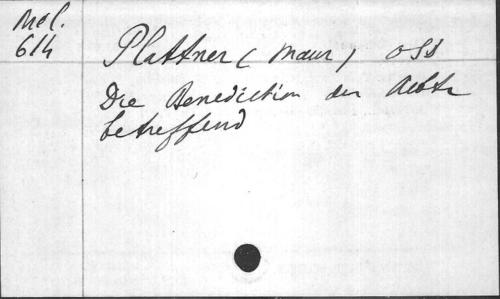 Mel.
614
Plattner (Maur) OSB
Die Benediction der Aebte
betreffend